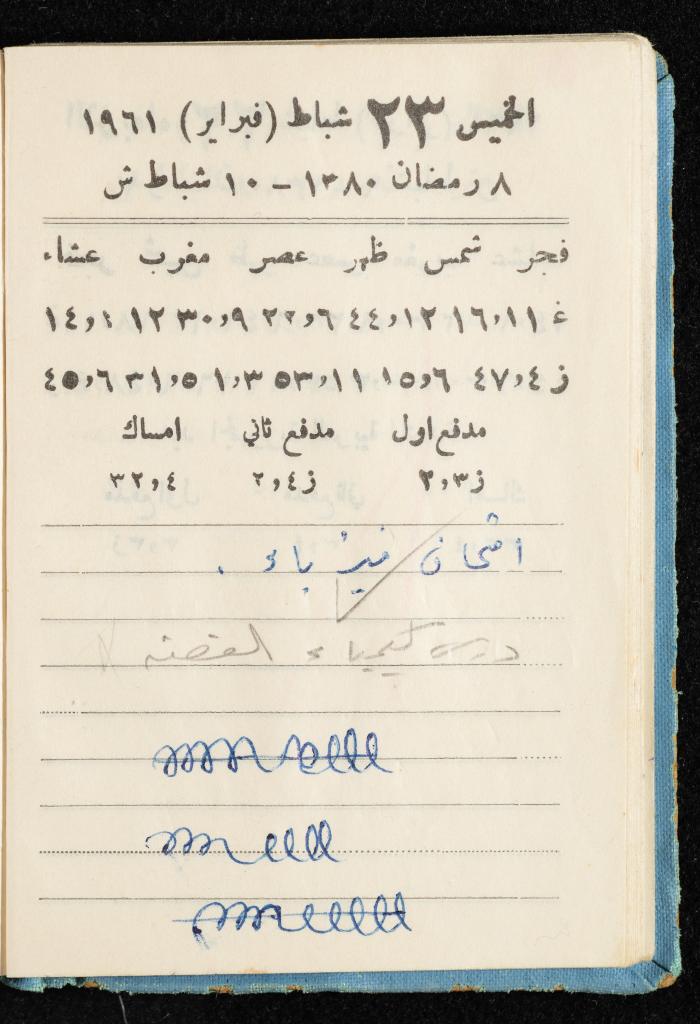 الخميس ٢٣ شباط (فبراير) ١٩٦١
٨ رمضان ١٣٨٠ – ١٠ شباط ش
فجر شمس ظهر عصر مغرب عشاء
غ ١١و١٦ ١٢و٤٤ ٦و٢٢ ٩و٣٠ ١٢ ١و١٤
ز ٤و٤٧ ٦و١٥ ١١و٥٣ ٣و١ ٥و٣١ ٦و٤٥
مدفع اول مدفع ثاني امساك
ز٣و٢ ز٤و٢ ٤و٣٢
امتحان فيزياء .
درس كيمياء